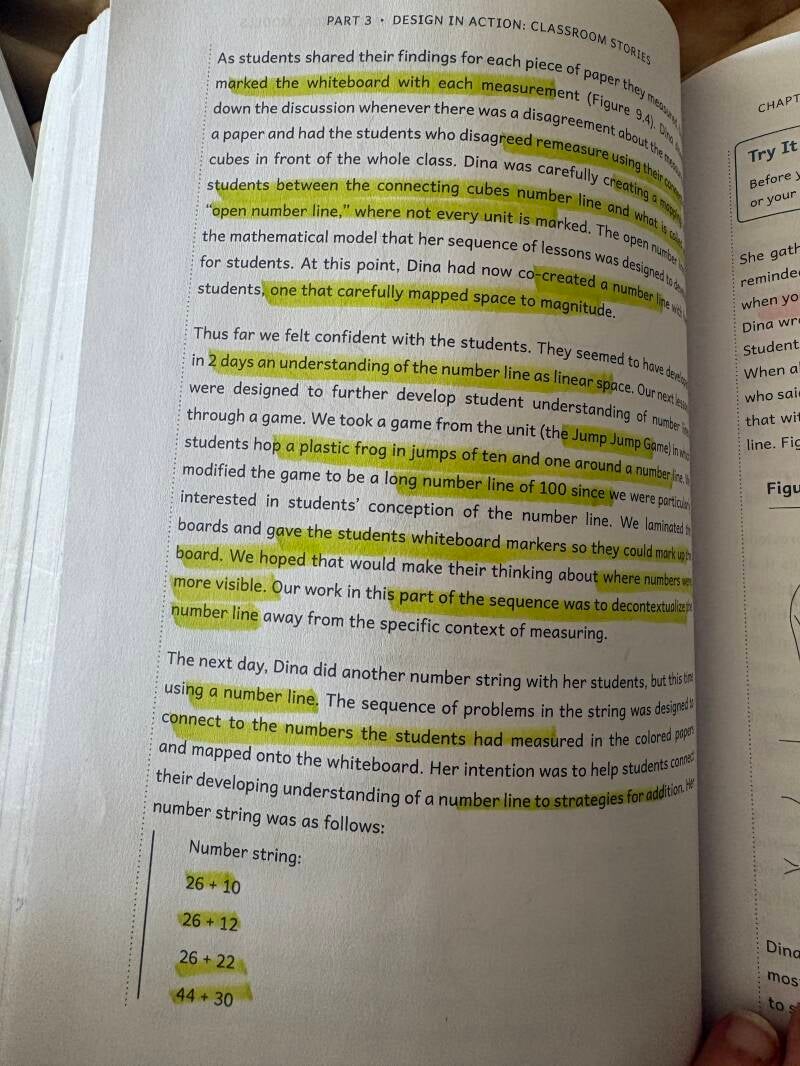 PART 3 • DESIGN IN ACTION: CLASSROOM STORIES
As students shared their findings for each piece of paper they measured,
marked the whiteboard with each measurement (Figure 9.4). Dina
down the discussion whenever there was a disagreement about the
a paper and had the students who disagreed remeasure using their
cubes in front of the whole class. Dina was carefully creating a mapping
students between the connecting cubes number line and what is called
“open number line,” where not every unit is marked. The open number
the mathematical model that her sequence of lessons was designed to
for students. At this point, Dina had now co-created a number line with
students, one that carefully mapped space to magnitude.
Thus far we felt confident with the students. They seemed to have
in 2 days an understanding of the number line as linear space. Our next
were designed to further develop student understanding of number
through a game. We took a game from the unit (the Jump Jump Game) in
students hop a plastic frog in jumps of ten and one around a number line.
modified the game to be a long number line of 100 since we were particularly
interested in students’ conception of the number line. We laminated
boards and gave the students whiteboard markers so they could mark up the
board. We hoped that would make their thinking about where numbers were
more visible. Our work in this part of the sequence was to decontextualize the
number line away from the specific context of measuring.
The next day, Dina did another number string with her students, but this time
using a number line. The sequence of problems in the string was designed to
connect to the numbers the students had measured in the colored papers
and mapped onto the whiteboard. Her intention was to help students connect
their developing understanding of a number line to strategies for addition. Her
number string was as follows:
Number string:
26 + 10
26 + 12
26 + 22
44 + 30
CHAPT
Try It
Before y
or your
She gath
reminded
when yo
Dina wr
Student
When a
who said
that wit
line. Fig
Figu
Dina
mos
to s